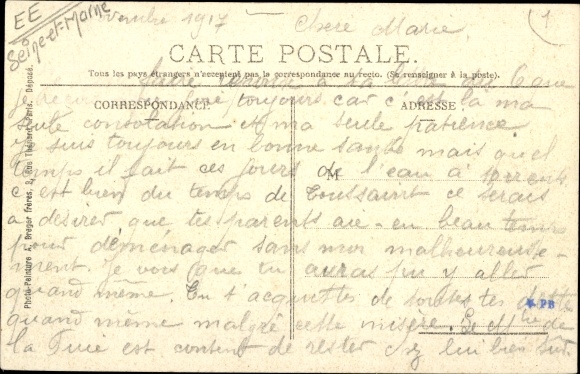 EE
Seine-et-Marne
1917 Chere Marie,
1
CARTE POSTALE.
Tous les pays étrangers n'acceptent pas la correspondance au recto. (Se renseigner à la poste).
CORRESPONDANCE
ADRESSE
toujours car c'est la ma
seule consolation et ma seule patience
Je suis toujours en bonne santé mais quel
temps il fait ces jours de l'eau à torrents
M
c'est bien du temps de Toussaint ce serais
a désirer que tes parents aie en beau temps
pour déménager sans mur malheureuse-
ment. Je vois que tu auras pu y aller
quand même. En t'acquettes de toutes tes
quand même malgré cette misère. Le de
la est content de rester chez lui bien sur.
PB
Photo-Peinture Breger frères, 9, Rue Thénard, Paris. Déposé.